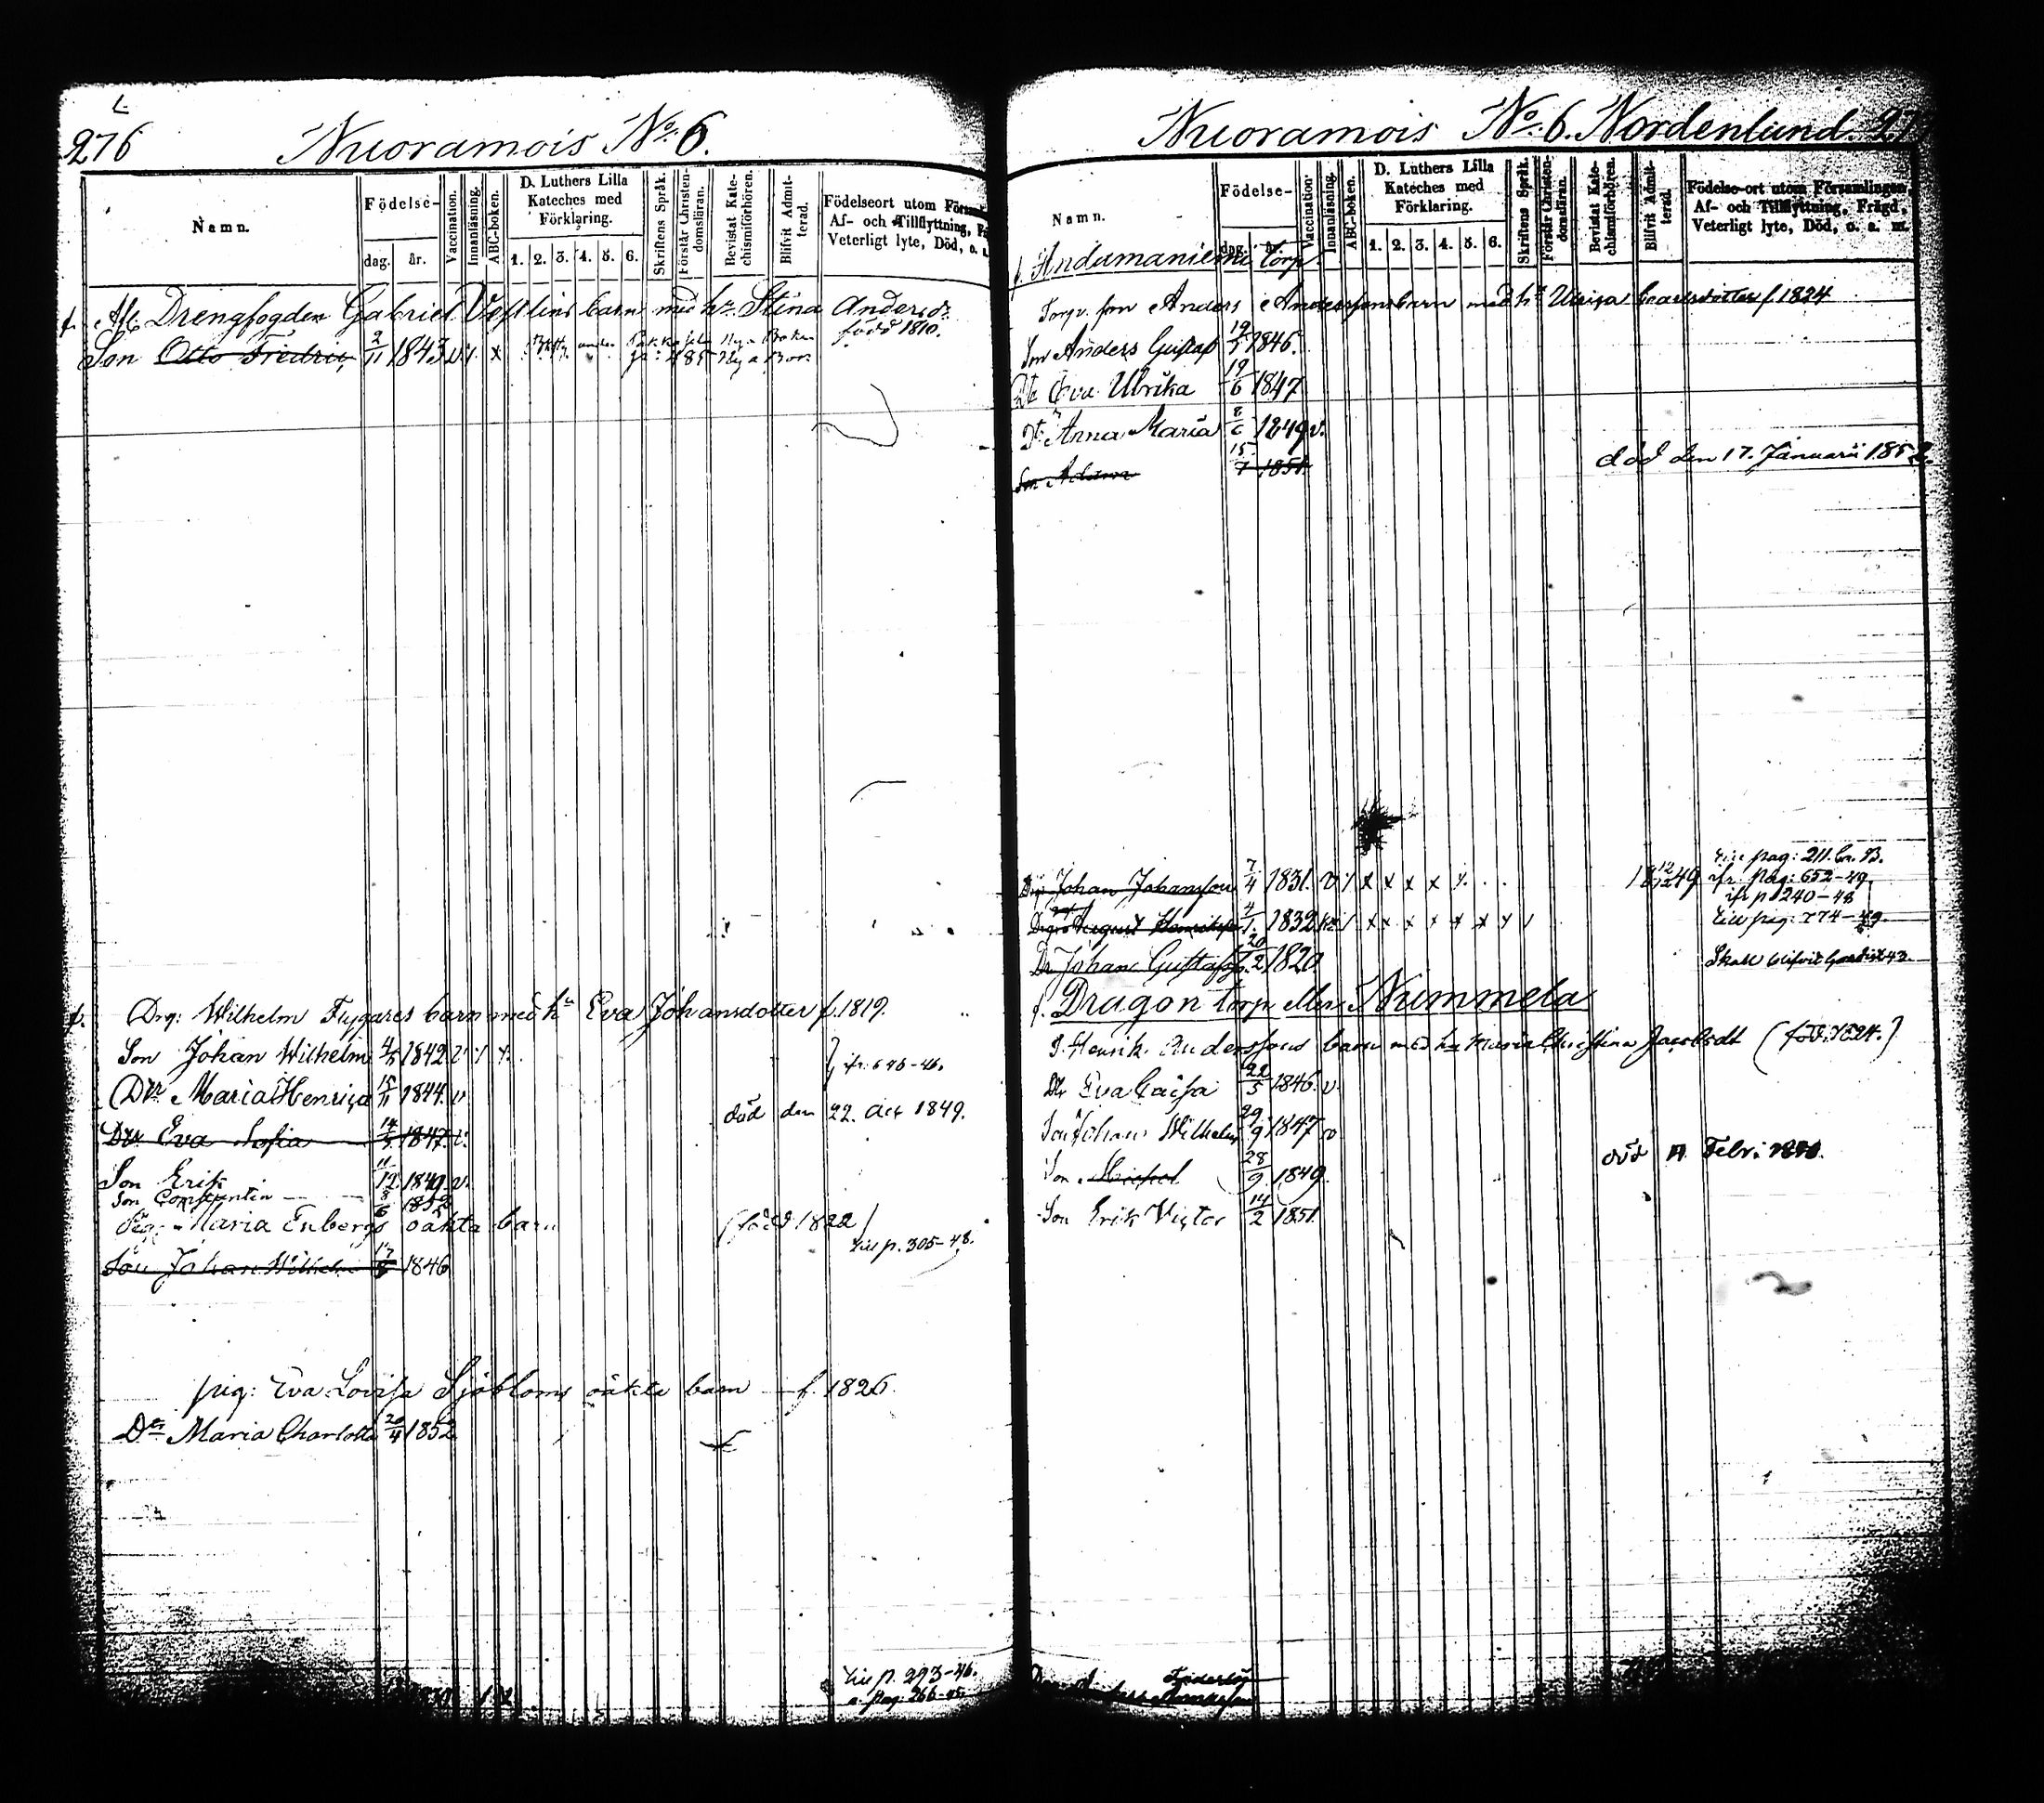 276
Nuoramois No. 6.
Namn.
Födelse-
dag.
år.
Vaccination.
Innanläsning.
ABC-boken.
D. Luthers Lilla
Kateches med
Förklaring.
1. 2. 3. 4. 5. 6.
Skriftens Språk.
Förstår Christen-
domsläran.
Bevistat Kate-
chismiförhören.
Blifvit Admit-
terad.
Födelseort utom
Af- och Tillflyttning,
Veterligt lyte, Död, o. a.
Drengfogden Gabriel barn med hu Stina Andersdr
född 1810.
Son Otto Fredric 2/11 1843 v
f. Drg: Wilhelm Fugares barn med hu Eva Johansdotter f. 1819.
Son Johan Wilhelm 4/5 1842 v
ifr. 646-46.
Dtr Maria Henrica 15/11 1844 v
död den 22. Oct 1849.
Dtr Eva Sofia 14/5 1847 v.
Son Erik 11/12 1849. v.
Son Constantin 8/6 1852
Maria Enbergs oäkta barn (född 1822)
till p. 305-48.
Son Johan Wilhelm 17/8 1846
pig: Eva Lovisa Sjöbloms oäkta barn f. 1826.
Dtr Maria Charlotta 20/4 1852
till p. 293-46.
pag: 266-45
Nuoramois No. 6. Nordenlund.
Namn.
Födelse-
dag.
år.
Vaccination.
Innanläsning.
ABC-boken.
D. Luthers Lilla
Kateches med
Förklaring.
1. 2. 3. 4. 5. 6.
Skriftens Språk.
Förstår Christen-
domsläran.
Bevistat Kate-
chismiförhören.
Blifvit Admit-
terad.
Födelse-ort utom Församlingen,
Af- och Tillflyttning, Frägd,
Veterligt lyte, Död, o. a. m.
Andumaniemi torp.
Torp. son Anders Anderssons barn med hu Ulrica Carlsdotter f. 1824
Son Anders Gustaf 1846.
Dtr Eva Ulrika 19/6 1847
Dtr Anna Maria 8/6 1849 v.
död den 17. Januarii 1852.
Son Adam 15/7 1851.
till pag: 211. Ln. B.
Johan Johansson 7/4 1831. v x x x x 18 12/12 49 ifr pag: 652-49.
ifr p 240-48
August 4/1 1832 x x x x x x till pag: 774-49
Dr Johan Gustafss. 20/2 1820
f. Dragon torp eller Nummela
Henrik Anderssons barn med hu Maria Christina Jacobsdt (föd. 1824.)
Dtr Eva Caisa 22/5 1846. v
Son Johan Wilhelm 29/9 1847 v
död Febr.
Son Michel 28/9 1849.
Son Erik Victor 14/2 1851.